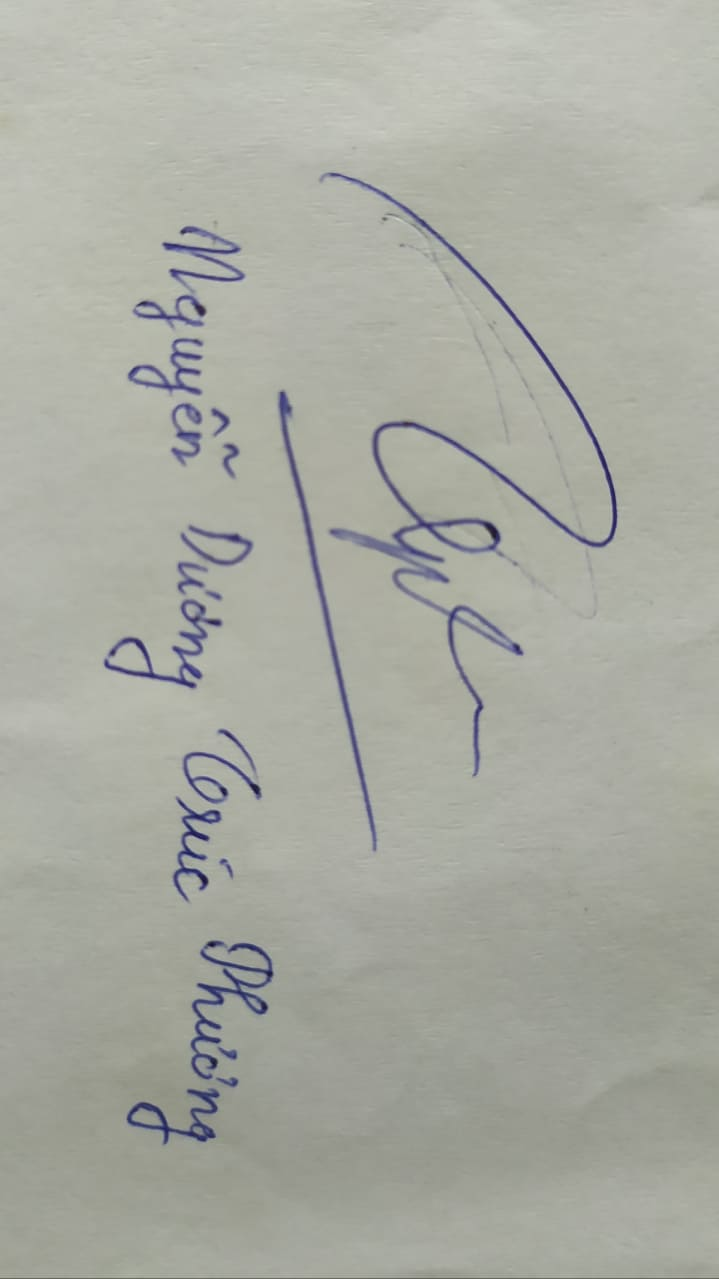 Nguyễn Dương Trúc Phương